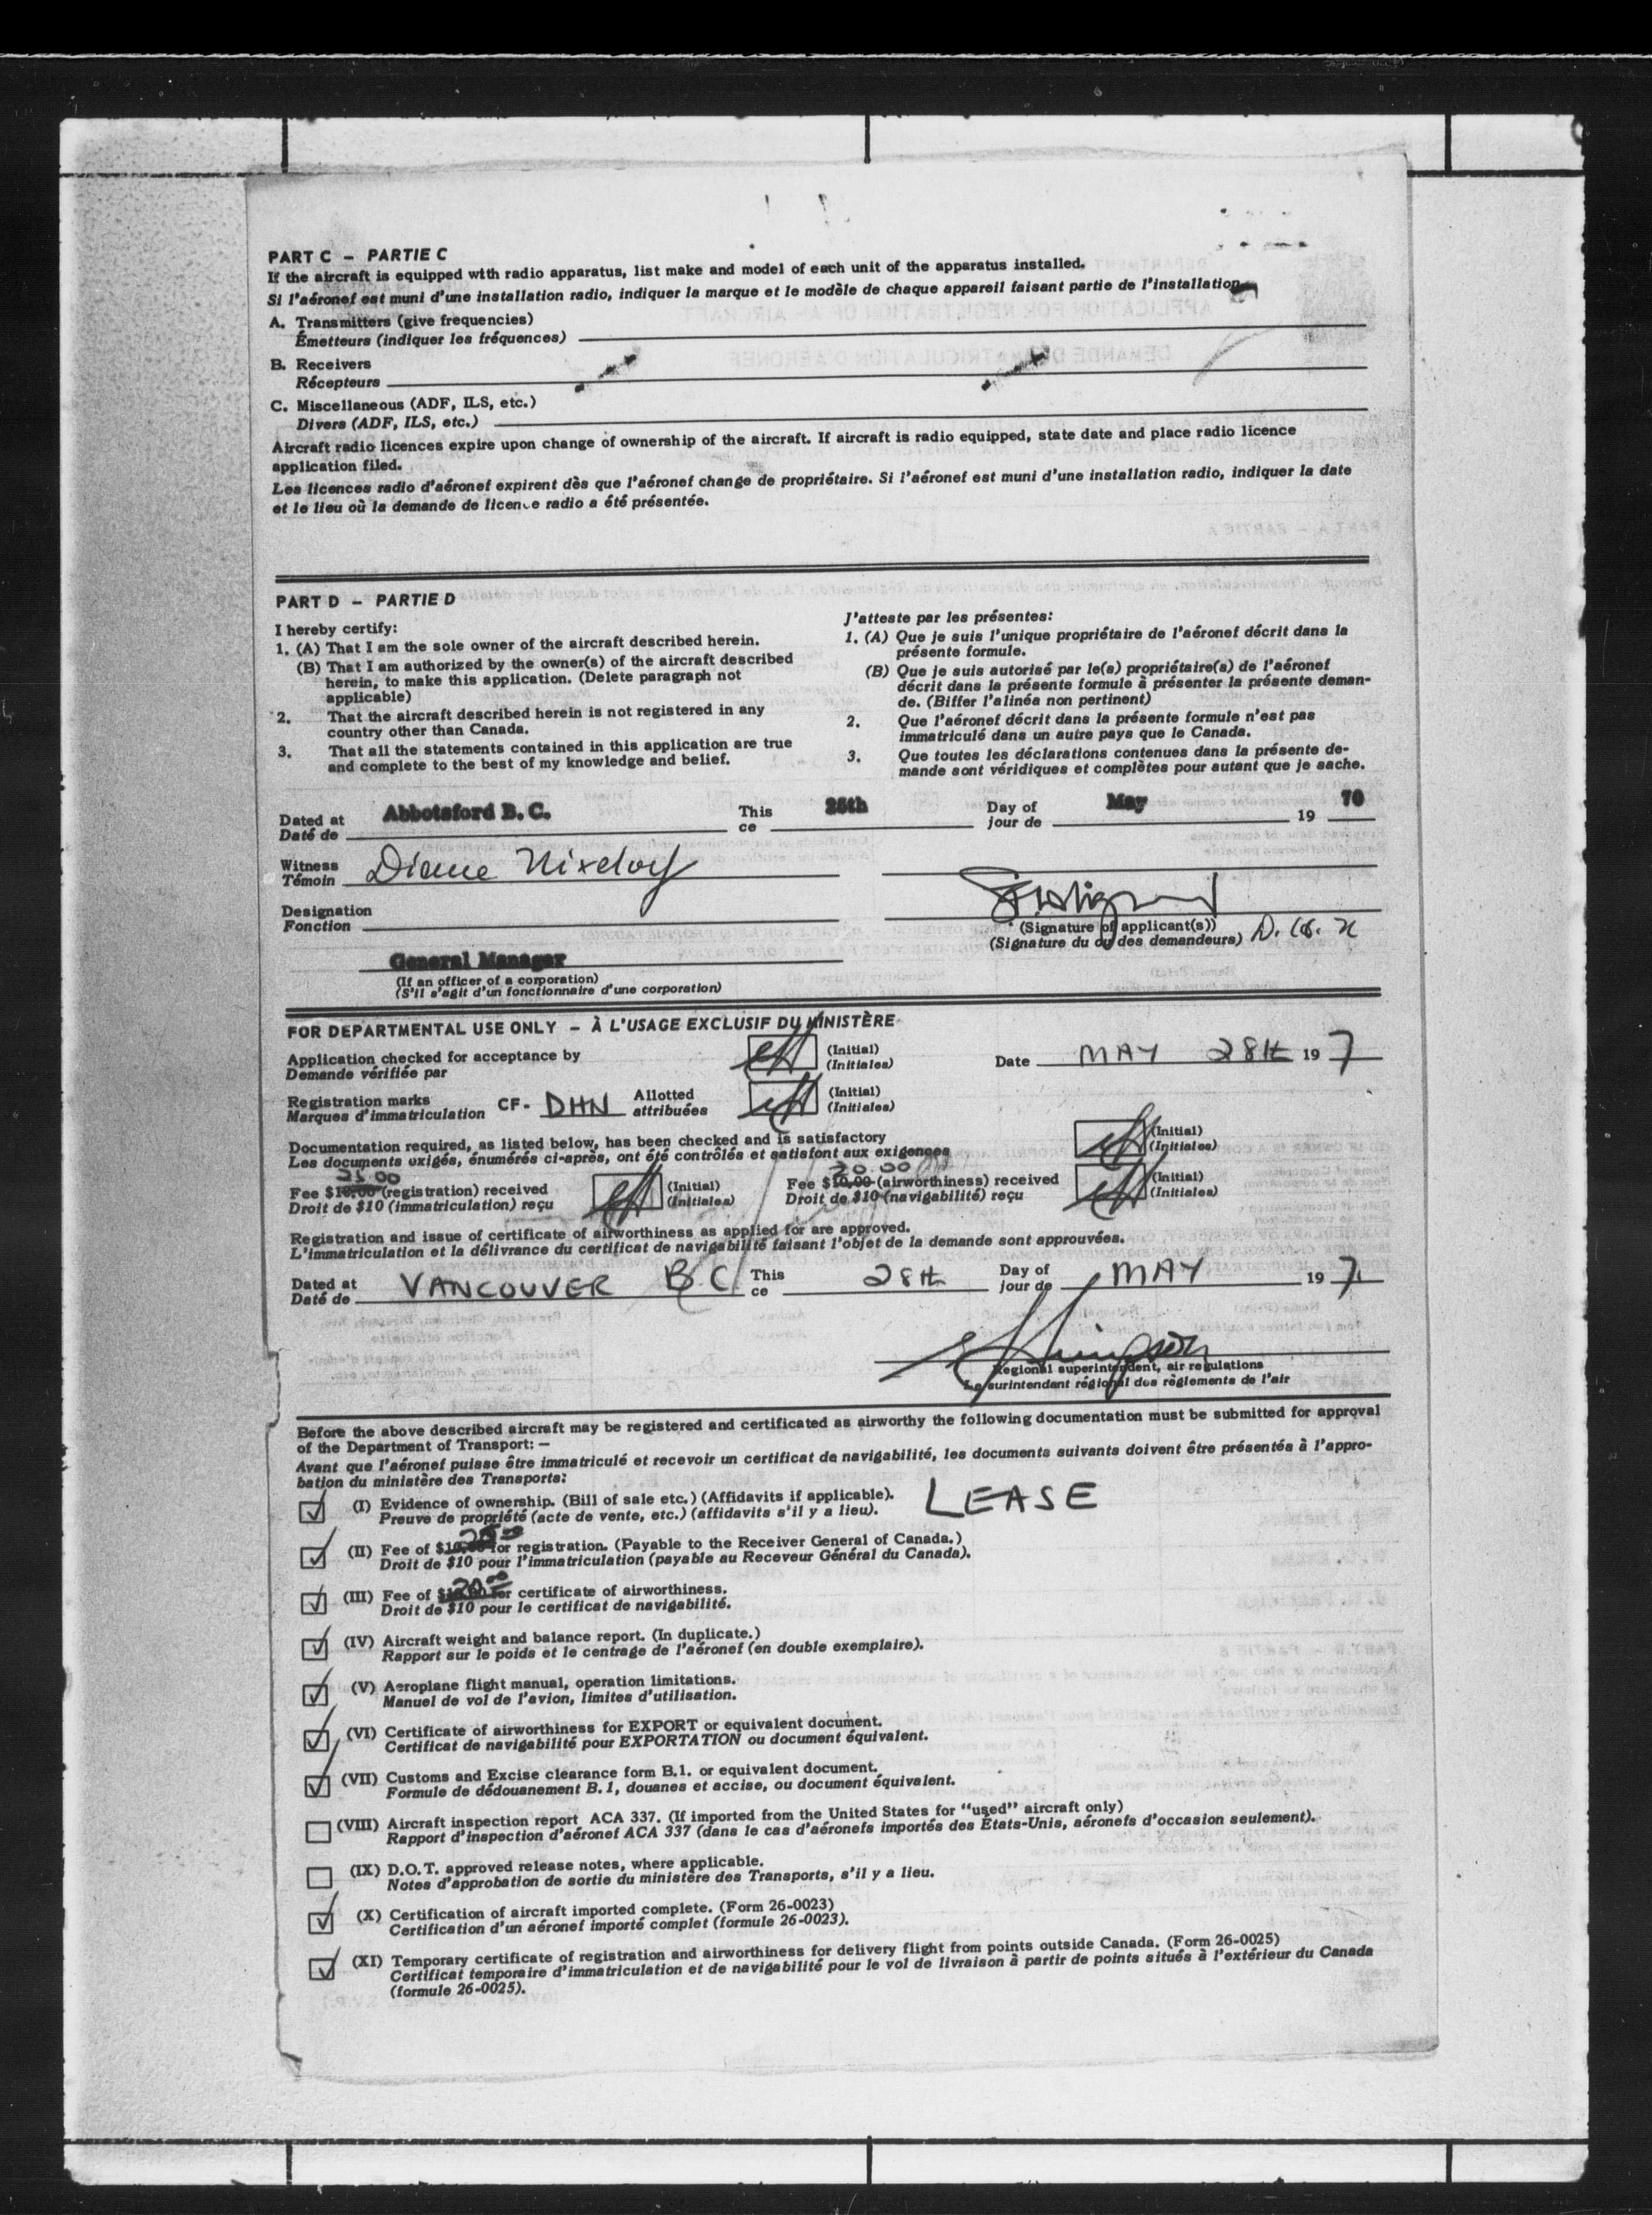 PART C - PARTIE C
If the aircraft is equipped with radio apparatus, list make and model of each unit of the apparatus installed.
Si l'aéronef est muni d'une installation radio, indiquer la marque et le modèle de chaque appareil faisant partie de l'installation
A. Transmitters (give frequencies)
Émetteurs (indiquer les fréquences)
B. Receivers
Récepteurs
C. Miscellaneous (ADF, ILS, etc.)
Divers (ADF, ILS, etc.)
Aircraft radio licences expire upon change of ownership of the aircraft. If aircraft is radio equipped, state date and place radio licence
application filed.
Les licences radio d'aéronef expirent dès que l'aéronef change de propriétaire. Si l'aéronef est muni d'une installation radio, indiquer la date
et le lieu où la demande de licence radio a été présentée.
PART D - PARTIE D
I hereby certify:
1. (A) That I am the sole owner of the aircraft described herein.
(B) That I am authorized by the owner(s) of the aircraft described
herein, to make this application. (Delete paragraph not
applicable)
2. That the aircraft described herein is not registered in any
country other than Canada.
3. That all the statements contained in this application are true
and complete to the best of my knowledge and belief.
J'atteste par les présentes:
1. (A) Que je suis l'unique propriétaire de l'aéronef décrit dans la
présente formule.
(B) Que je suis autorisé par le(s) propriétaire(s) de l'aéronef
décrit dans la présente formule à présenter la présente deman-
de. (Biffer l'alinéa non pertinent)
2. Que l'aéronef décrit dans la présente formule n'est pas
immatriculé dans un autre pays que le Canada.
3. Que toutes les déclarations contenues dans la présente de-
mande sont véridiques et complètes pour autant que je sache.
Dated at Abbotsford B.C. This 25th Day of May 19 70
Daté de ce jour de
Witness Diane
Témoin
Designation
Fonction
(Signature of applicant(s))
(Signature du ou des demandeurs)
General Manager
(If an officer of a corporation)
(S'il s'agit d'un fonctionnaire d'une corporation)
FOR DEPARTMENTAL USE ONLY - À L'USAGE EXCLUSIF DU MINISTÈRE
Application checked for acceptance by (Initial) Date MAY 28th 19 7
Demande vérifiée par (Initiales)
Registration marks CF- DHN Allotted (Initial)
Marques d'immatriculation attribuées (Initiales)
Documentation required, as listed below, has been checked and is satisfactory (Initial)
Les documents exigés, énumérés ci-après, ont été contrôlés et satisfont aux exigences (Initiales)
25.00 20.00
Fee $10.00 (registration) received (Initial) Fee $10.00 (airworthiness) received (Initial)
Droit de $10 (immatriculation) reçu (Initiales) Droit de $10 (navigabilité) reçu (Initiales)
Registration and issue of certificate of airworthiness as applied for are approved.
L'immatriculation et la délivrance du certificat de navigabilité faisant l'objet de la demande sont approuvées.
Dated at VANCOUVER B.C. This 28th Day of MAY 19 7
Daté de ce jour de
Simpson
Regional superintendent, air regulations
Le surintendant régional des règlements de l'air
Before the above described aircraft may be registered and certificated as airworthy the following documentation must be submitted for approval
of the Department of Transport: -
Avant que l'aéronef puisse être immatriculé et recevoir un certificat de navigabilité, les documents suivants doivent être présentés à l'appro-
bation du ministère des Transports:
(I) Evidence of ownership. (Bill of sale etc.) (Affidavits if applicable). LEASE
Preuve de propriété (acte de vente, etc.) (affidavits s'il y a lieu).
25.00
(II) Fee of $10.00 for registration. (Payable to the Receiver General of Canada.)
Droit de $10 pour l'immatriculation (payable au Receveur Général du Canada).
20.00
(III) Fee of $10.00 for certificate of airworthiness.
Droit de $10 pour le certificat de navigabilité.
(IV) Aircraft weight and balance report. (In duplicate.)
Rapport sur le poids et le centrage de l'aéronef (en double exemplaire).
(V) Aeroplane flight manual, operation limitations.
Manuel de vol de l'avion, limites d'utilisation.
(VI) Certificate of airworthiness for EXPORT or equivalent document.
Certificat de navigabilité pour EXPORTATION ou document équivalent.
(VII) Customs and Excise clearance form B.1. or equivalent document.
Formule de dédouanement B.1, douanes et accise, ou document équivalent.
(VIII) Aircraft inspection report ACA 337. (If imported from the United States for "used" aircraft only)
Rapport d'inspection d'aéronef ACA 337 (dans le cas d'aéronefs importés des États-Unis, aéronefs d'occasion seulement).
(IX) D.O.T. approved release notes, where applicable.
Notes d'approbation de sortie du ministère des Transports, s'il y a lieu.
(X) Certification of aircraft imported complete. (Form 26-0023)
Certification d'un aéronef importé complet (formule 26-0023).
(XI) Temporary certificate of registration and airworthiness for delivery flight from points outside Canada. (Form 26-0025)
Certificat temporaire d'immatriculation et de navigabilité pour le vol de livraison à partir de points situés à l'extérieur du Canada
(formule 26-0025).